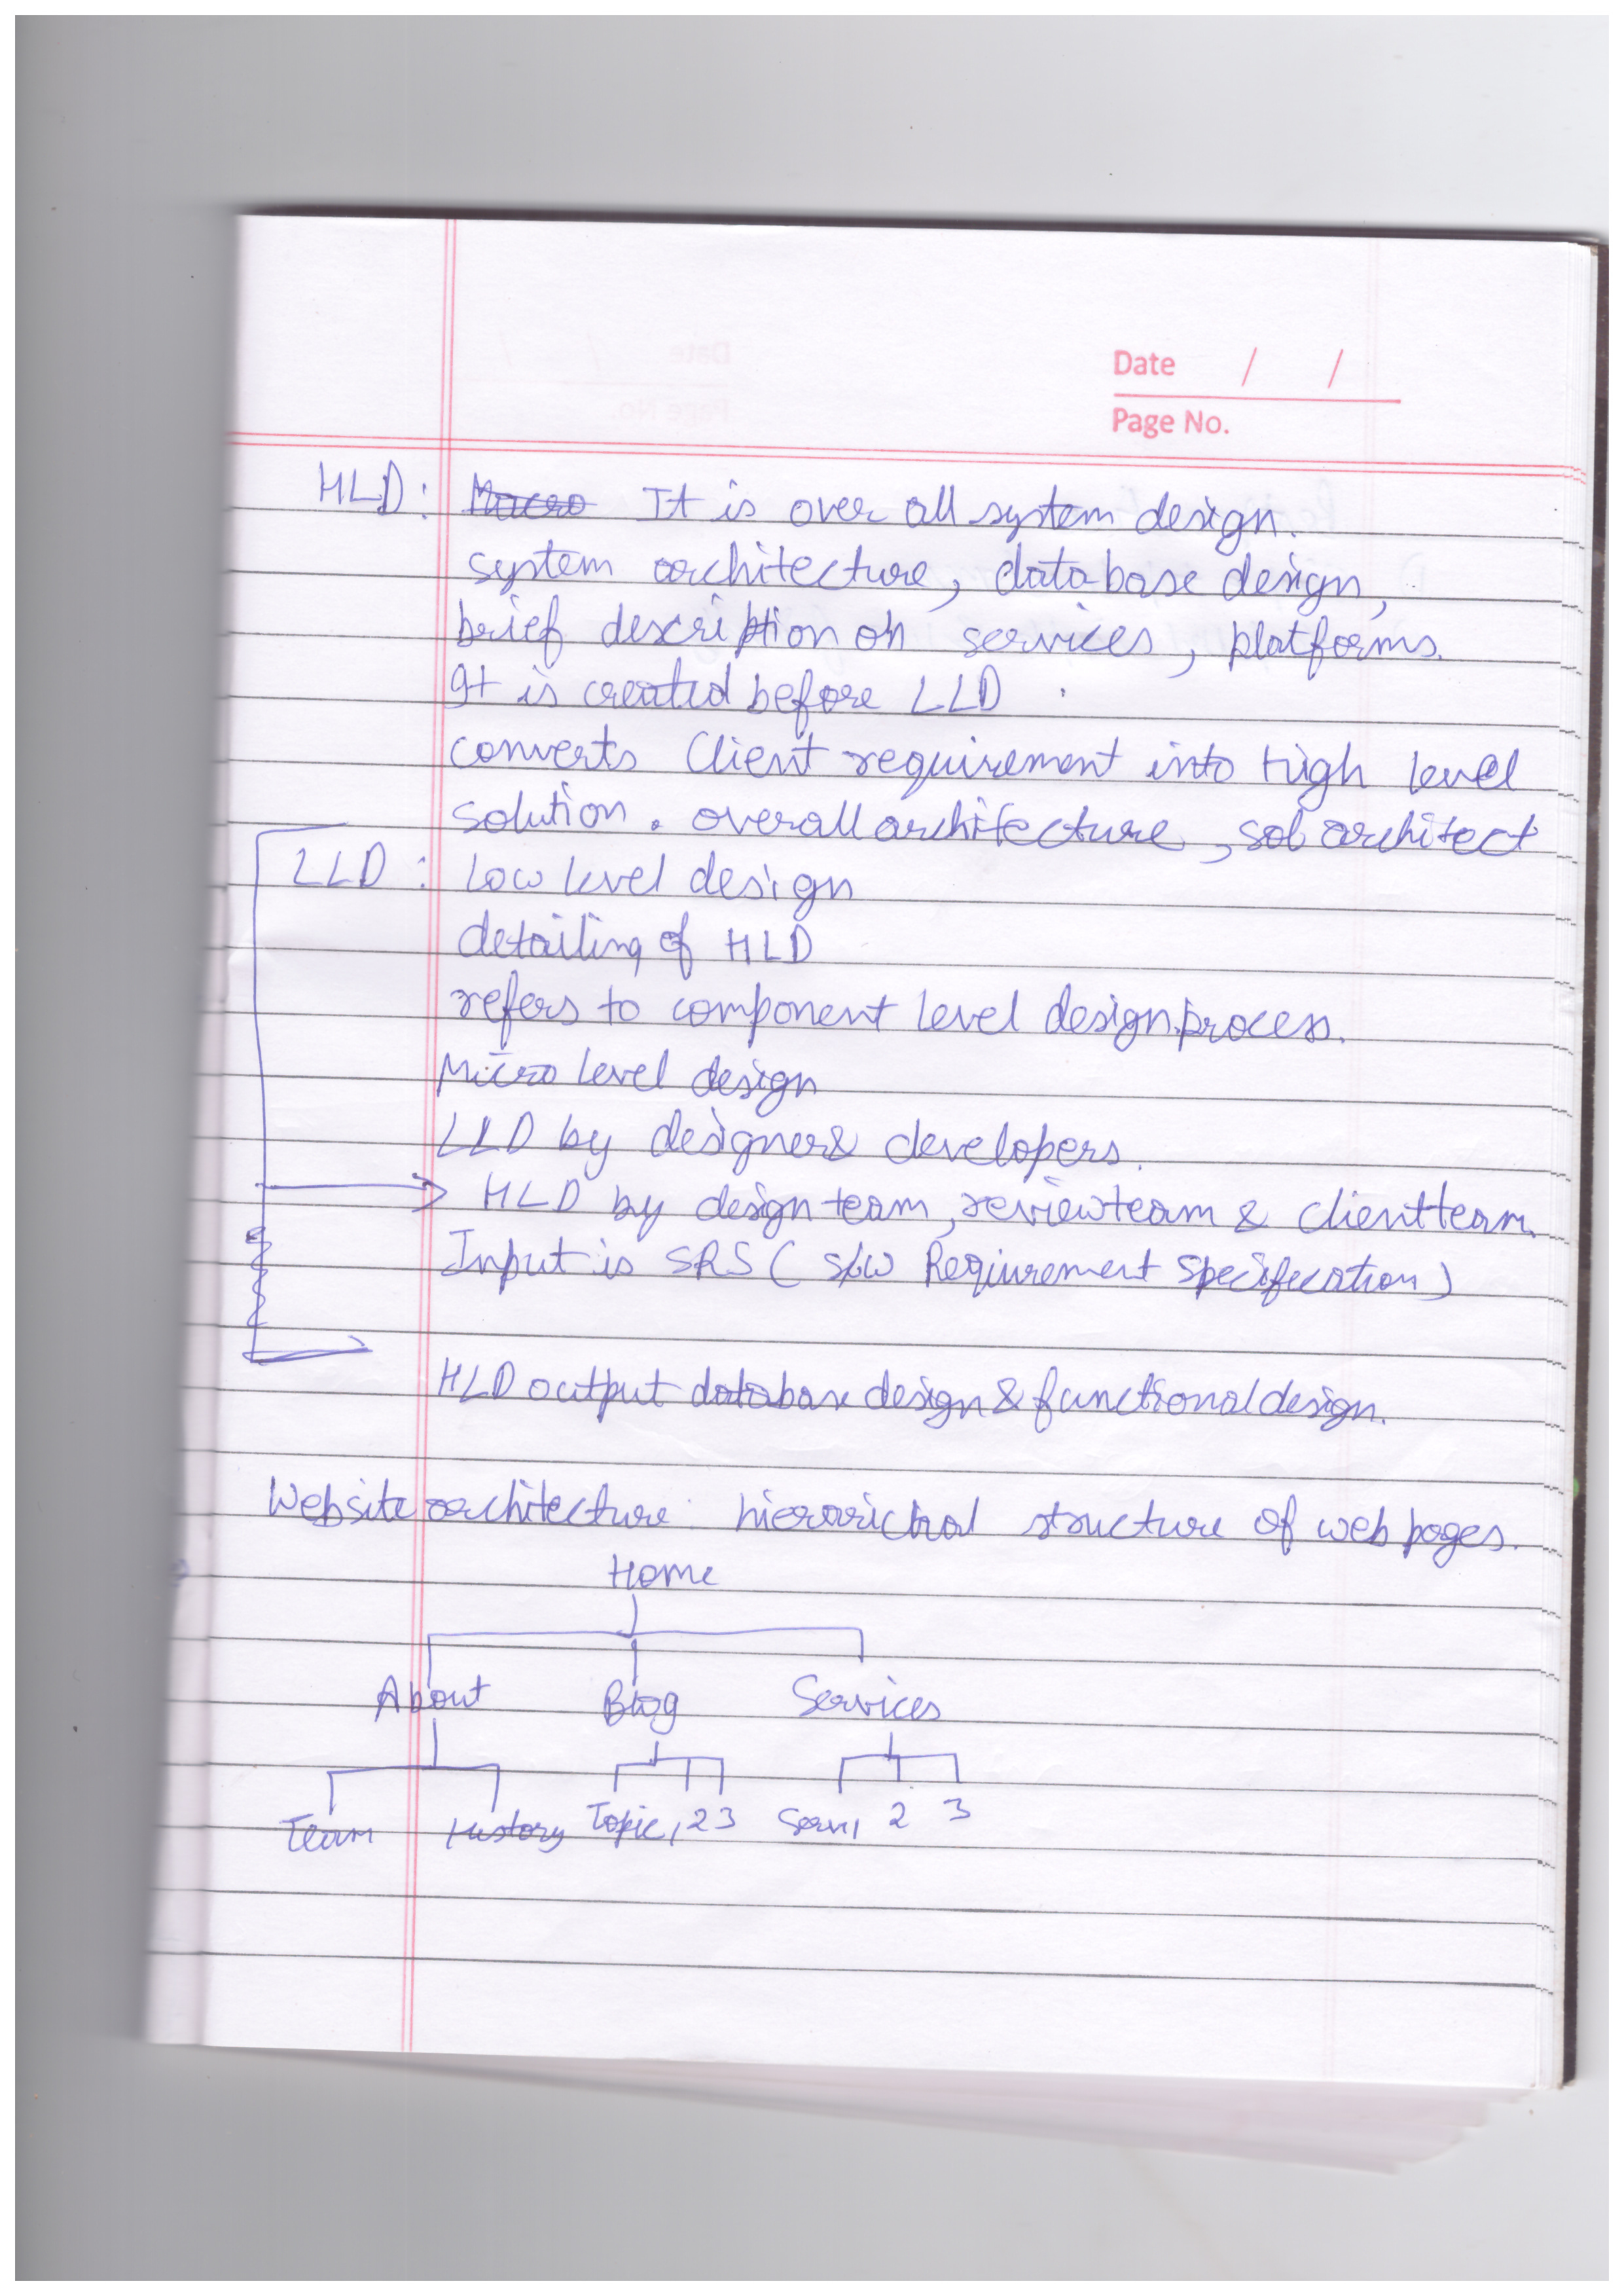 Date / /
Page No.
HLD: Macro It is over all system design.
system architecture, database design,
brief description on services, platforms.
It is created before LLD.
converts Client requirement into high level
solution. overall architecture, sol architect
LLD: Low level design
detailing of HLD
refers to component level design process.
Micro level design
LLD by designer & developers.
HLD by design team, review team & client team.
Input is SRS ( S/W Requirement Specification)
HLD output database design & functional design.
Website architecture: hierarichal structure of web pages.
Home
About Blog Services
Team History Topic 1 2 3 Serv 1 2 3